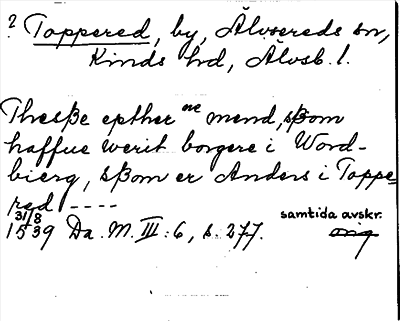 ? Toppered, by, Älvsereds sn,
Kinds hd, Älvsb. l.
Thesße epther ne mend, sßom
haffue werit borgere i Word-
bierg, sßom er Anders i Toppe-
red ----
31/8 samtida avskr.
1539 Da. M. III: 6, s. 277. orig